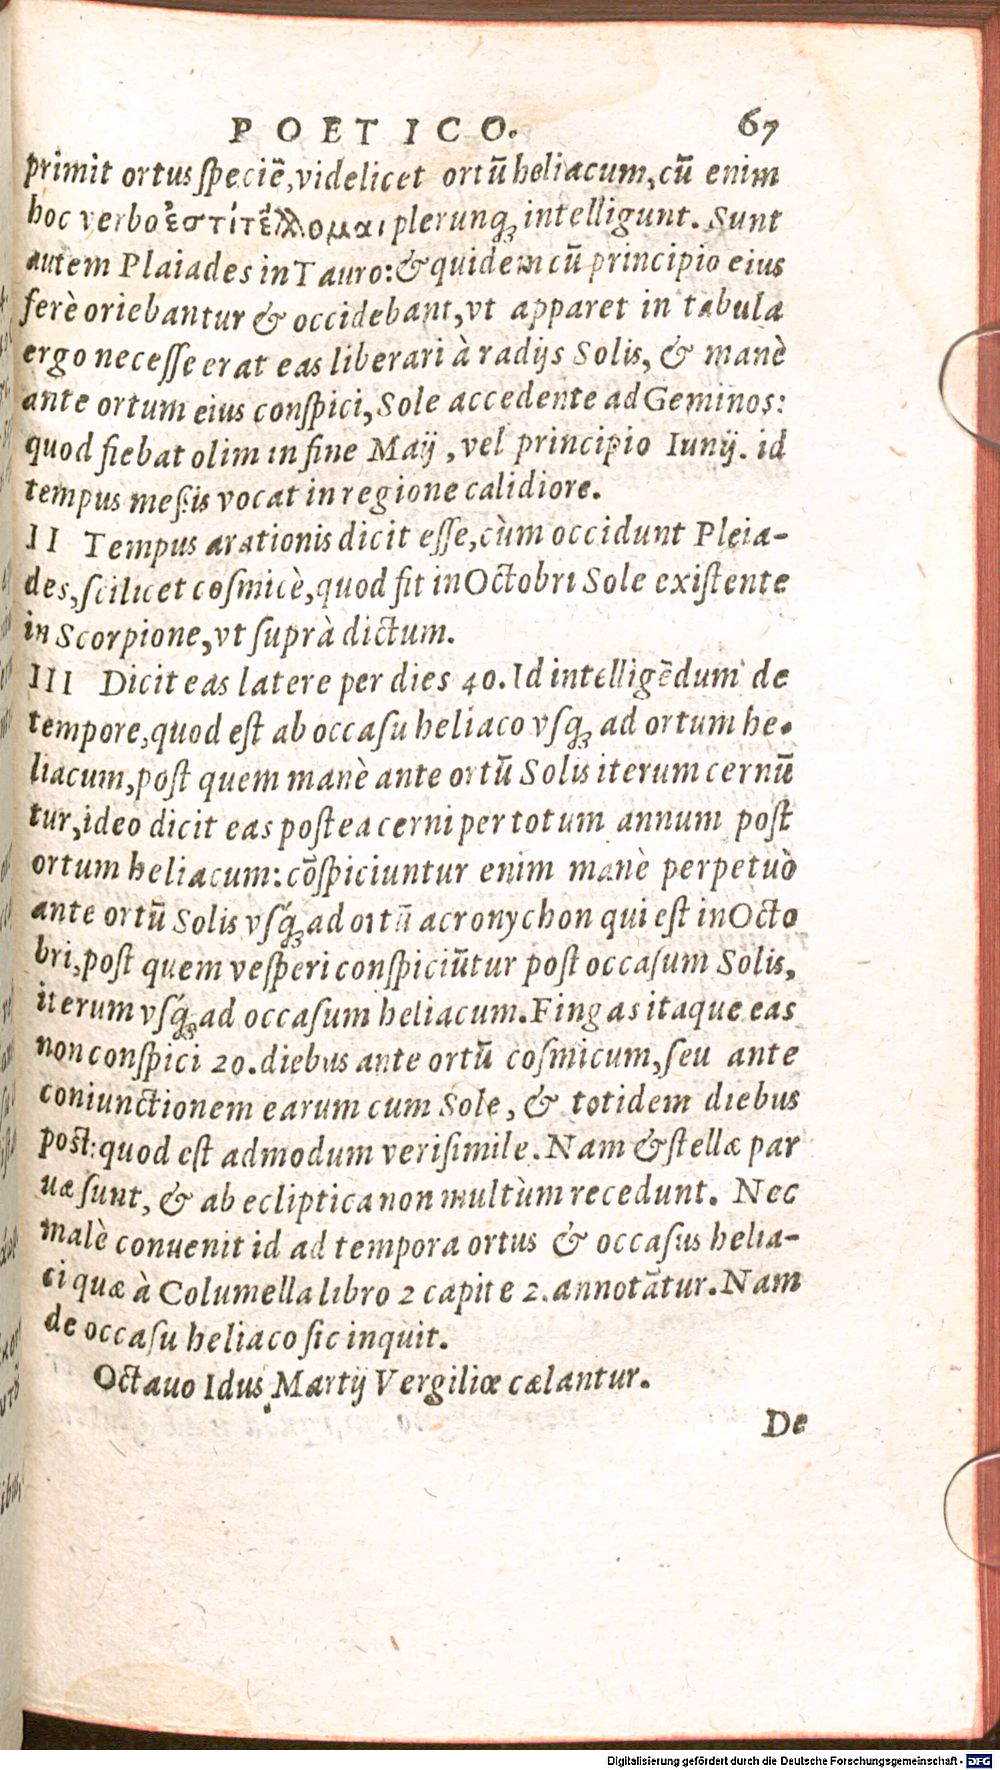 POETICO. 67
primit ortus ſpeciē, videlicet ortū heliacum, cū enim
hoc verbo ἐστίτέλλομαι plerunq; intelligunt. Sunt
autem Plaiades in Tauro: & quidem cū principio eius
ferè oriebantur & occidebant, vt apparet in tabula
ergo neceſſe erat eas liberari à radijs Solis, & manè
ante ortum eius conſpici, Sole accedente ad Geminos:
quod fiebat olim in fine Maij, vel principio Iunij. id
tempus meſsis vocat in regione calidiore.
II Tempus arationis dicit eſſe, cùm occidunt Pleia-
des, ſcilicet coſmicè, quod fit in Octobri Sole exiſtente
in Scorpione, vt ſuprà dictum.
III Dicit eas latere per dies 40. Id intelligēdum de
tempore, quod eſt ab occaſu heliaco vſq; ad ortum he-
liacum, poſt quem manè ante ortū Solis iterum cernū
tur, ideo dicit eas poſtea cerni per totum annum poſt
ortum heliacum: cōſpiciuntur enim manè perpetuò
ante ortū Solis vſq́; ad ortū acronychon qui eſt in Octo
bri, poſt quem veſperi conſpiciūtur poſt occaſum Solis,
iterum vſq́; ad occaſum heliacum. Fingas itaque eas
non conſpici 20. diebus ante ortū coſmicum, ſeu ante
coniunctionem earum cum Sole, & totidem diebus
poſt: quod eſt admodum veriſimile. Nam & ſtellæ par
uæ ſunt, & ab ecliptica non multùm recedunt. Nec
malè conuenit id ad tempora ortus & occaſus helia-
ci quæ à Columella libro 2 capite 2. annotātur. Nam
de occaſu heliaco ſic inquit.
Octauo Idus Martij Vergiliæ cælantur.
De
Digitalisierung gefördert durch die Deutsche Forschungsgemeinschaft - DFG